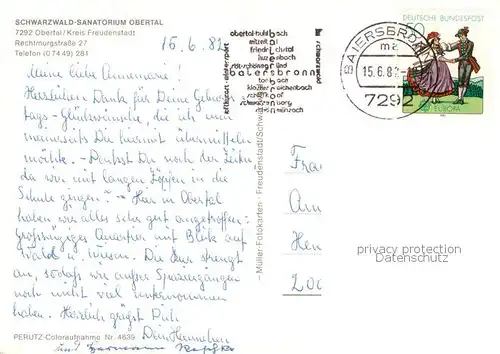 SCHWARZWALD-SANATORIUM OBERTAL
7292 Obertal/Kreis Freudenstadt
Rechtmurgstraße 27
Telefon (07449) 281
15.6.82
Meine liebe Annemarie!
Herzlichen Dank für Deine Geburts-
tags-Glückwünsche, die ich mei
nerseits Dir hiermit übermitteln
möchte. - Denkst Du noch der Zeiten
da wir mit langen Zöpfen in die
Schule gingen? - Hier in Obertal
haben wir alles sehr gut angetroffen:
Großzügiges Quartier mit Blick auf
Wald u. Wiesen. Die Kur strengt
an, sodaß wir außer Spaziergängen
noch nicht viel unternommen
haben. Herzlich grüßt Dich
Dein Hannchen
und Hermann
PERUTZ-Coloraufnahme Nr. 4639
Müller-Fotokarten · Freudenstadt/Schw
obertal-buhlbach
mitteltal
friedrichstal
huzenbach
baiersbronn
klosterreichenbach
schwarzenberg
BAIERSBRONN
15.6.82
7292
DEUTSCHE BUNDESPOST
50
EUROPA
Fra
An
Hen
200
privacy protection
Datenschutz